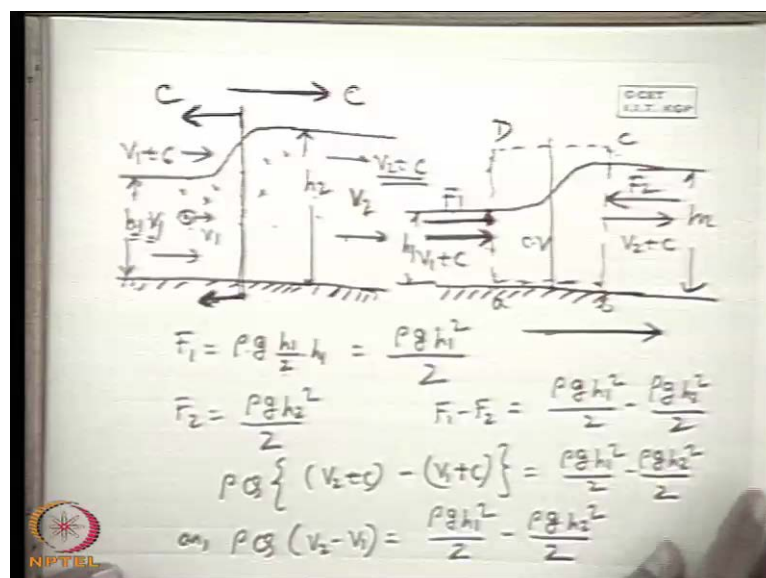 C C
C.CET
I.I.T. KGP
V₁+C V₂+C
h₁ V₁ V₁ h₂ V₂
D C
F₁ F₂
h₁ V₁+C C.V V₂+C h₂
a b
F₁ = ρg h₁/2 · h₁ = ρgh₁²/2
F₂ = ρgh₂²/2 F₁-F₂ = ρgh₁²/2 - ρgh₂²/2
ρq{(V₂+C) - (V₁+C)} = ρgh₁²/2 - ρgh₂²/2
or, ρq(V₂-V₁) = ρgh₁²/2 - ρgh₂²/2
NPTEL